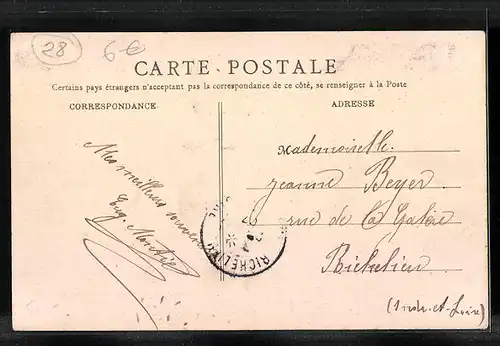 28
6€
CARTE POSTALE
Certains pays étrangers n'acceptant pas la correspondance de ce côté, se renseigner à la Poste
CORRESPONDANCE
ADRESSE
Mademoiselle
Jeanne Beyer
rue de la Galère
Richelieu
(Indre-et-Loire)
Mes meilleurs souvenirs
Eug.
RICHELIEU